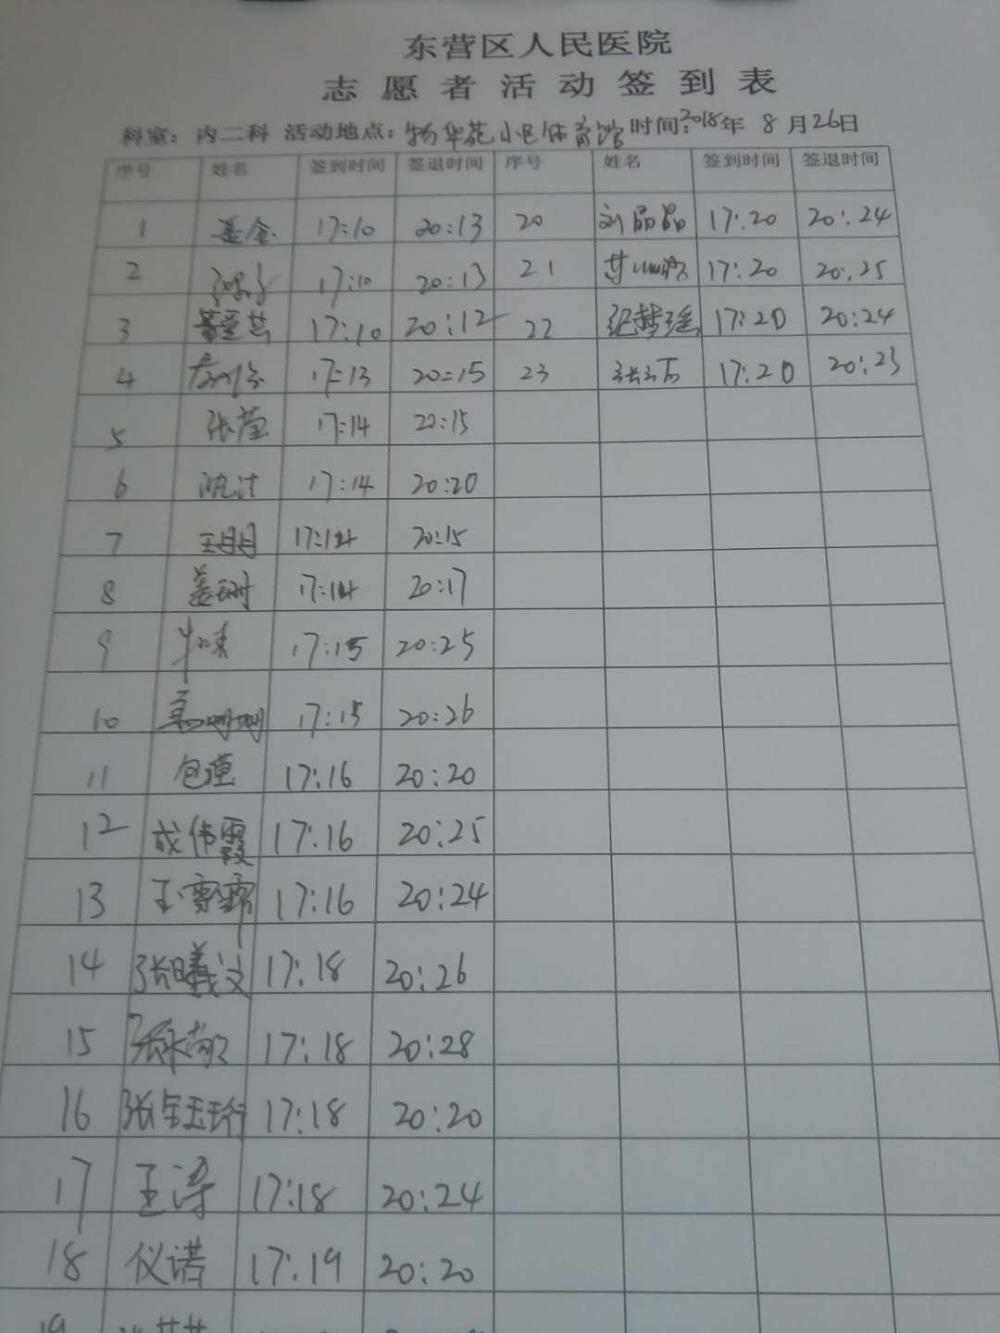 东营区人民医院
志愿者活动签到表
科室：内二科 活动地点：物华苑小区体育馆 时间：2018年 8月26日
序号 姓名 签到时间 签退时间 序号 姓名 签到时间 签退时间
1 17:10 20:13 20 刘晶晶 17:20 20:24
2 17:10 20:13 21 17:20 20:25
3 17:10 20:12 22 纪梦瑶 17:20 20:24
4 17:13 20:15 23 17:20 20:23
5 张莹 17:14 20:15
6 17:14 20:20
7 王月月 17:14 20:15
8 17:14 20:17
9 17:15 20:25
10 17:15 20:26
11 17:16 20:20
12 成伟霞 17:16 20:25
13 17:16 20:24
14 张曦文 17:18 20:26
15 17:18 20:28
16 张钰珩 17:18 20:20
17 王涛 17:18 20:24
18 仪诺 17:19 20:20
19